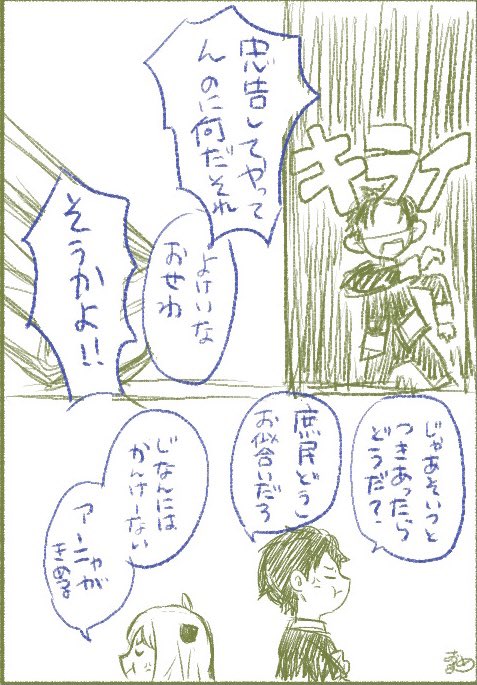 キライ
忠告してやって
んのに何だそれ
よけいな
おせわ
そうかよ!!
じゃあそいつと
つきあったら
どうだ?
庶民どうし
お似合いだろ
じなんには
かんけーない
アーニャが
きめる